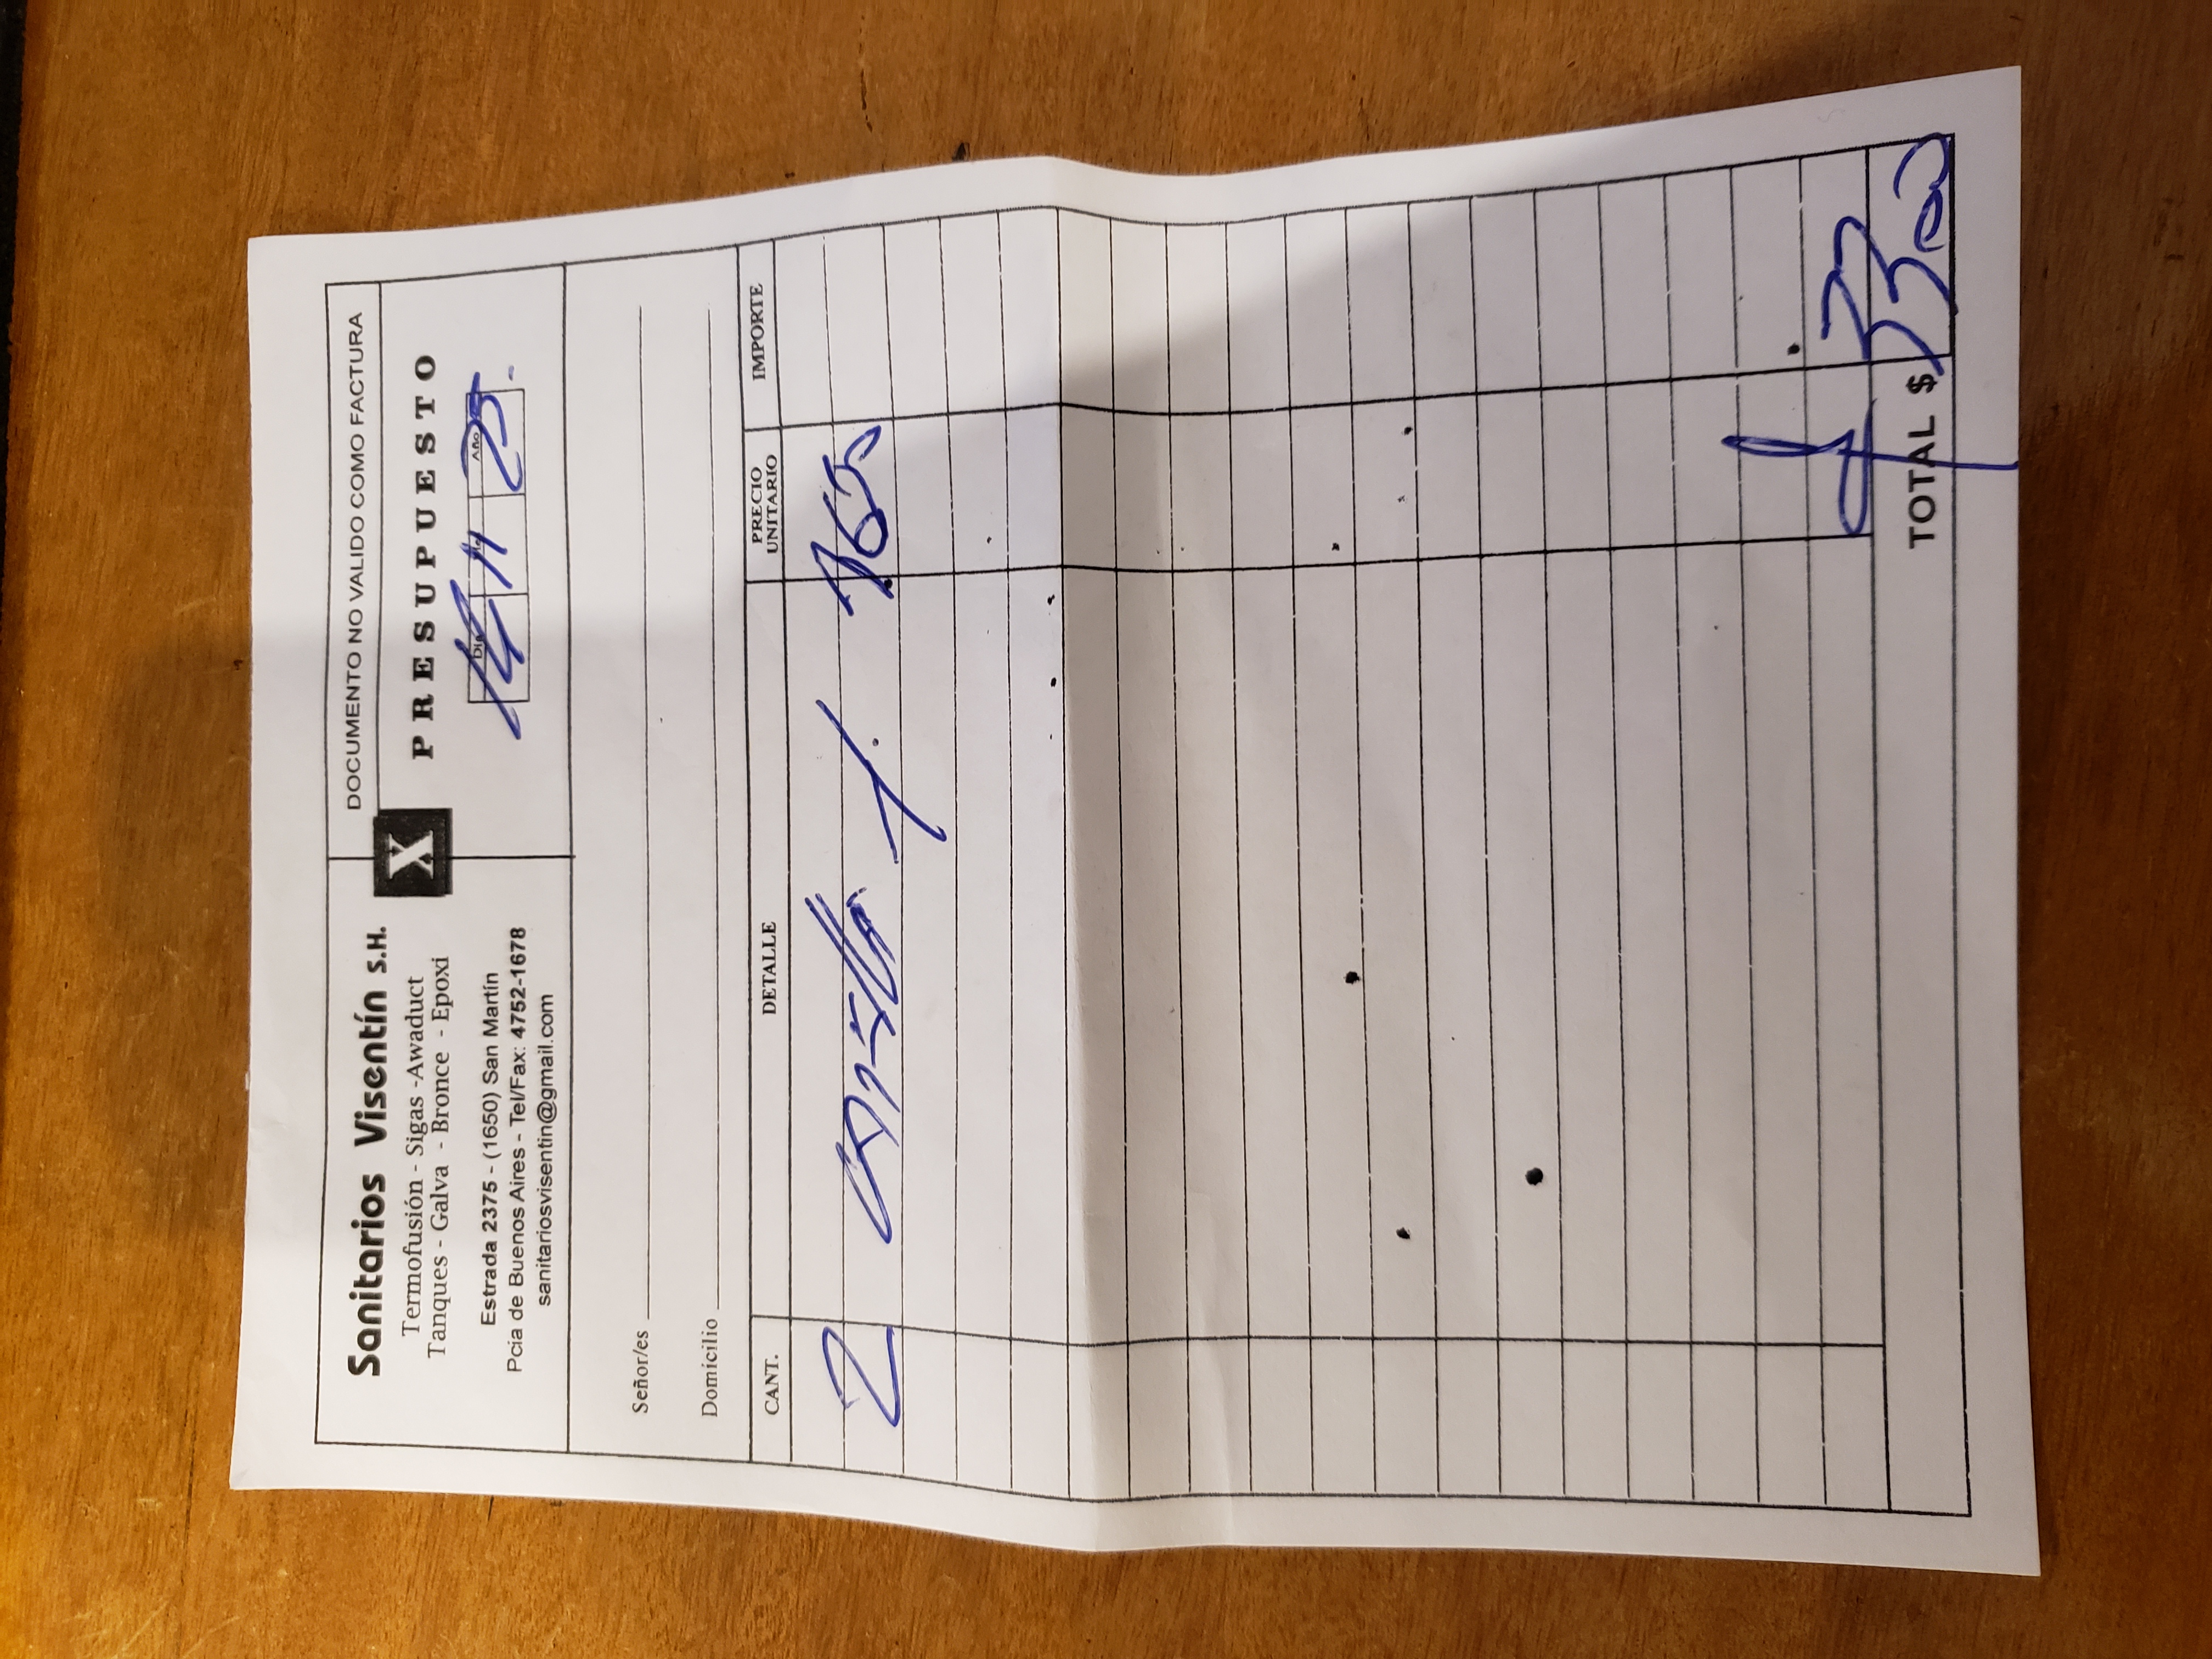 Sanitarios Visentín S.H.
Termofusión - Sigas -Awaduct
Tanques - Galva - Bronce - Epoxi
Estrada 2375 - (1650) San Martín
Pcia de Buenos Aires - Tel/Fax: 4752-1678
sanitariosvisentin@gmail.com
X
DOCUMENTO NO VALIDO COMO FACTURA
PRESUPUESTO
Día Año
11 25.
Señor/es
Domicilio
CANT. DETALLE PRECIO UNITARIO IMPORTE
2
TOTAL $ 3300